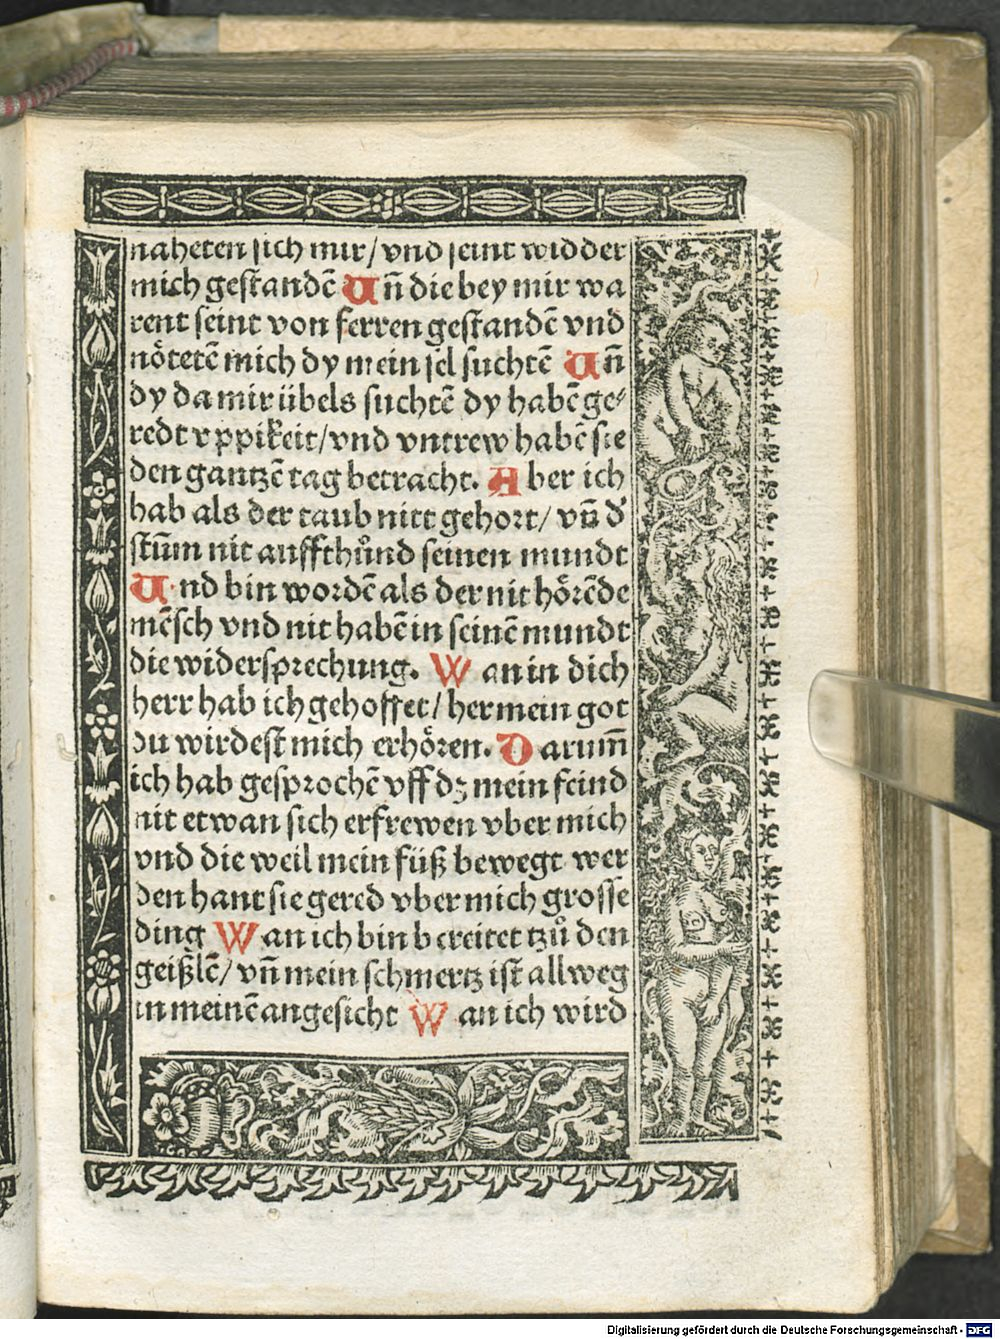 naheten sich mir/ vnd seint widder
mich gestandē Un̄ die bey mir wa
rent seint von ferren gestandē vnd
nötetē mich dy mein sel suchtē Un̄
dy da mir übels suchtē dy habē ge⸗
redt vppikeit/vnd vntrew habē sie
den gantzē tag betracht. Aber ich
hab als der taub nitt gehort/ vn̄ d'
stūm nit auffthůnd seinen mundt
Und bin wordē als der nit hörēde
mēsch vnd nit habē in seinē mundt
die widersprechung. Wan in dich
herr hab ich gehoffet/ her mein got
du wirdest mich erhören. Darum̄
ich hab gesprochē vff dz mein feind
nit etwan sich erfrewen vber mich
vnd die weil mein füß bewegt wer
den hant sie gered vber mich grosse
ding Wan ich bin bereitet tzů den
geißlē/ vn̄ mein schmertz ist allweg
in meinē angesicht Wan ich wird
Digitalisierung gefördert durch die Deutsche Forschungsgemeinschaft - DFG